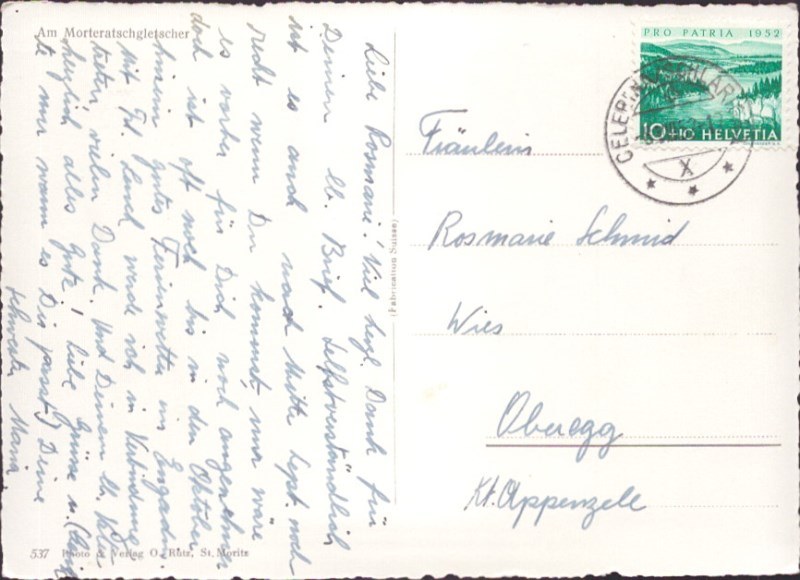 Am Morteratschgletscher
Liebe Rosmarie! Viel herzl. Dank für
Deinen lb. Brief. Selbstverständlich
ist es auch nach Mitte Sept. noch
recht wenn Du kommst, nur wäre
es vorher für Dich noch angenehmer
doch ist oft noch bis in den Oktober
hinein gutes Ferienwetter im Engadin.
Mit Frl. werde ich in Verbindung
treten, vielen Dank. Und Deinem lb.
herzlich alles Gute! Liebe Grüsse u.
mir wann es Dir passt) Deine
Maria
(Fabrication Suisse)
537 Photo & Verlag O. Rutz, St. Moritz
PRO PATRIA 1952
10+10 HELVETIA
CELERINA/SCHLARIGNA
X
Fräulein
Rosmarie Schmid
Wies
Oberegg
Kt. Appenzell